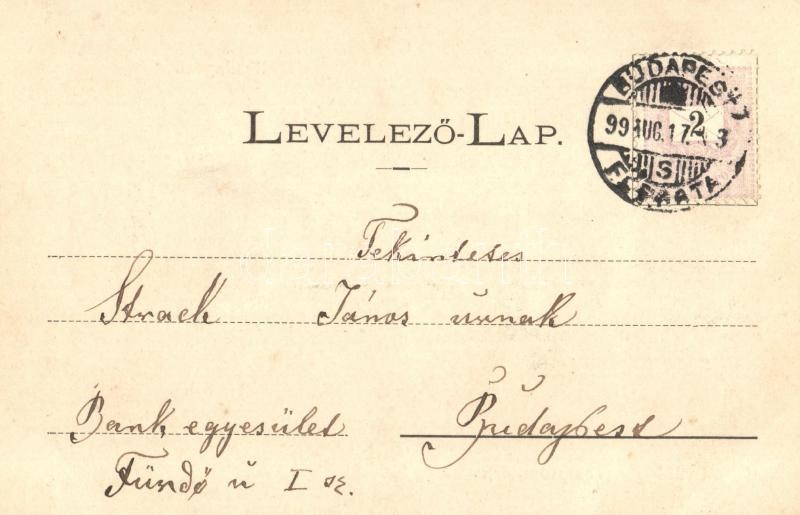 BUDAPEST
99 AUG. 17.
2
S
LEVELEZŐ-LAP.
Tekintetes
Strack János urnak
Bank egyesület Budapest
Fürdő u I sz.